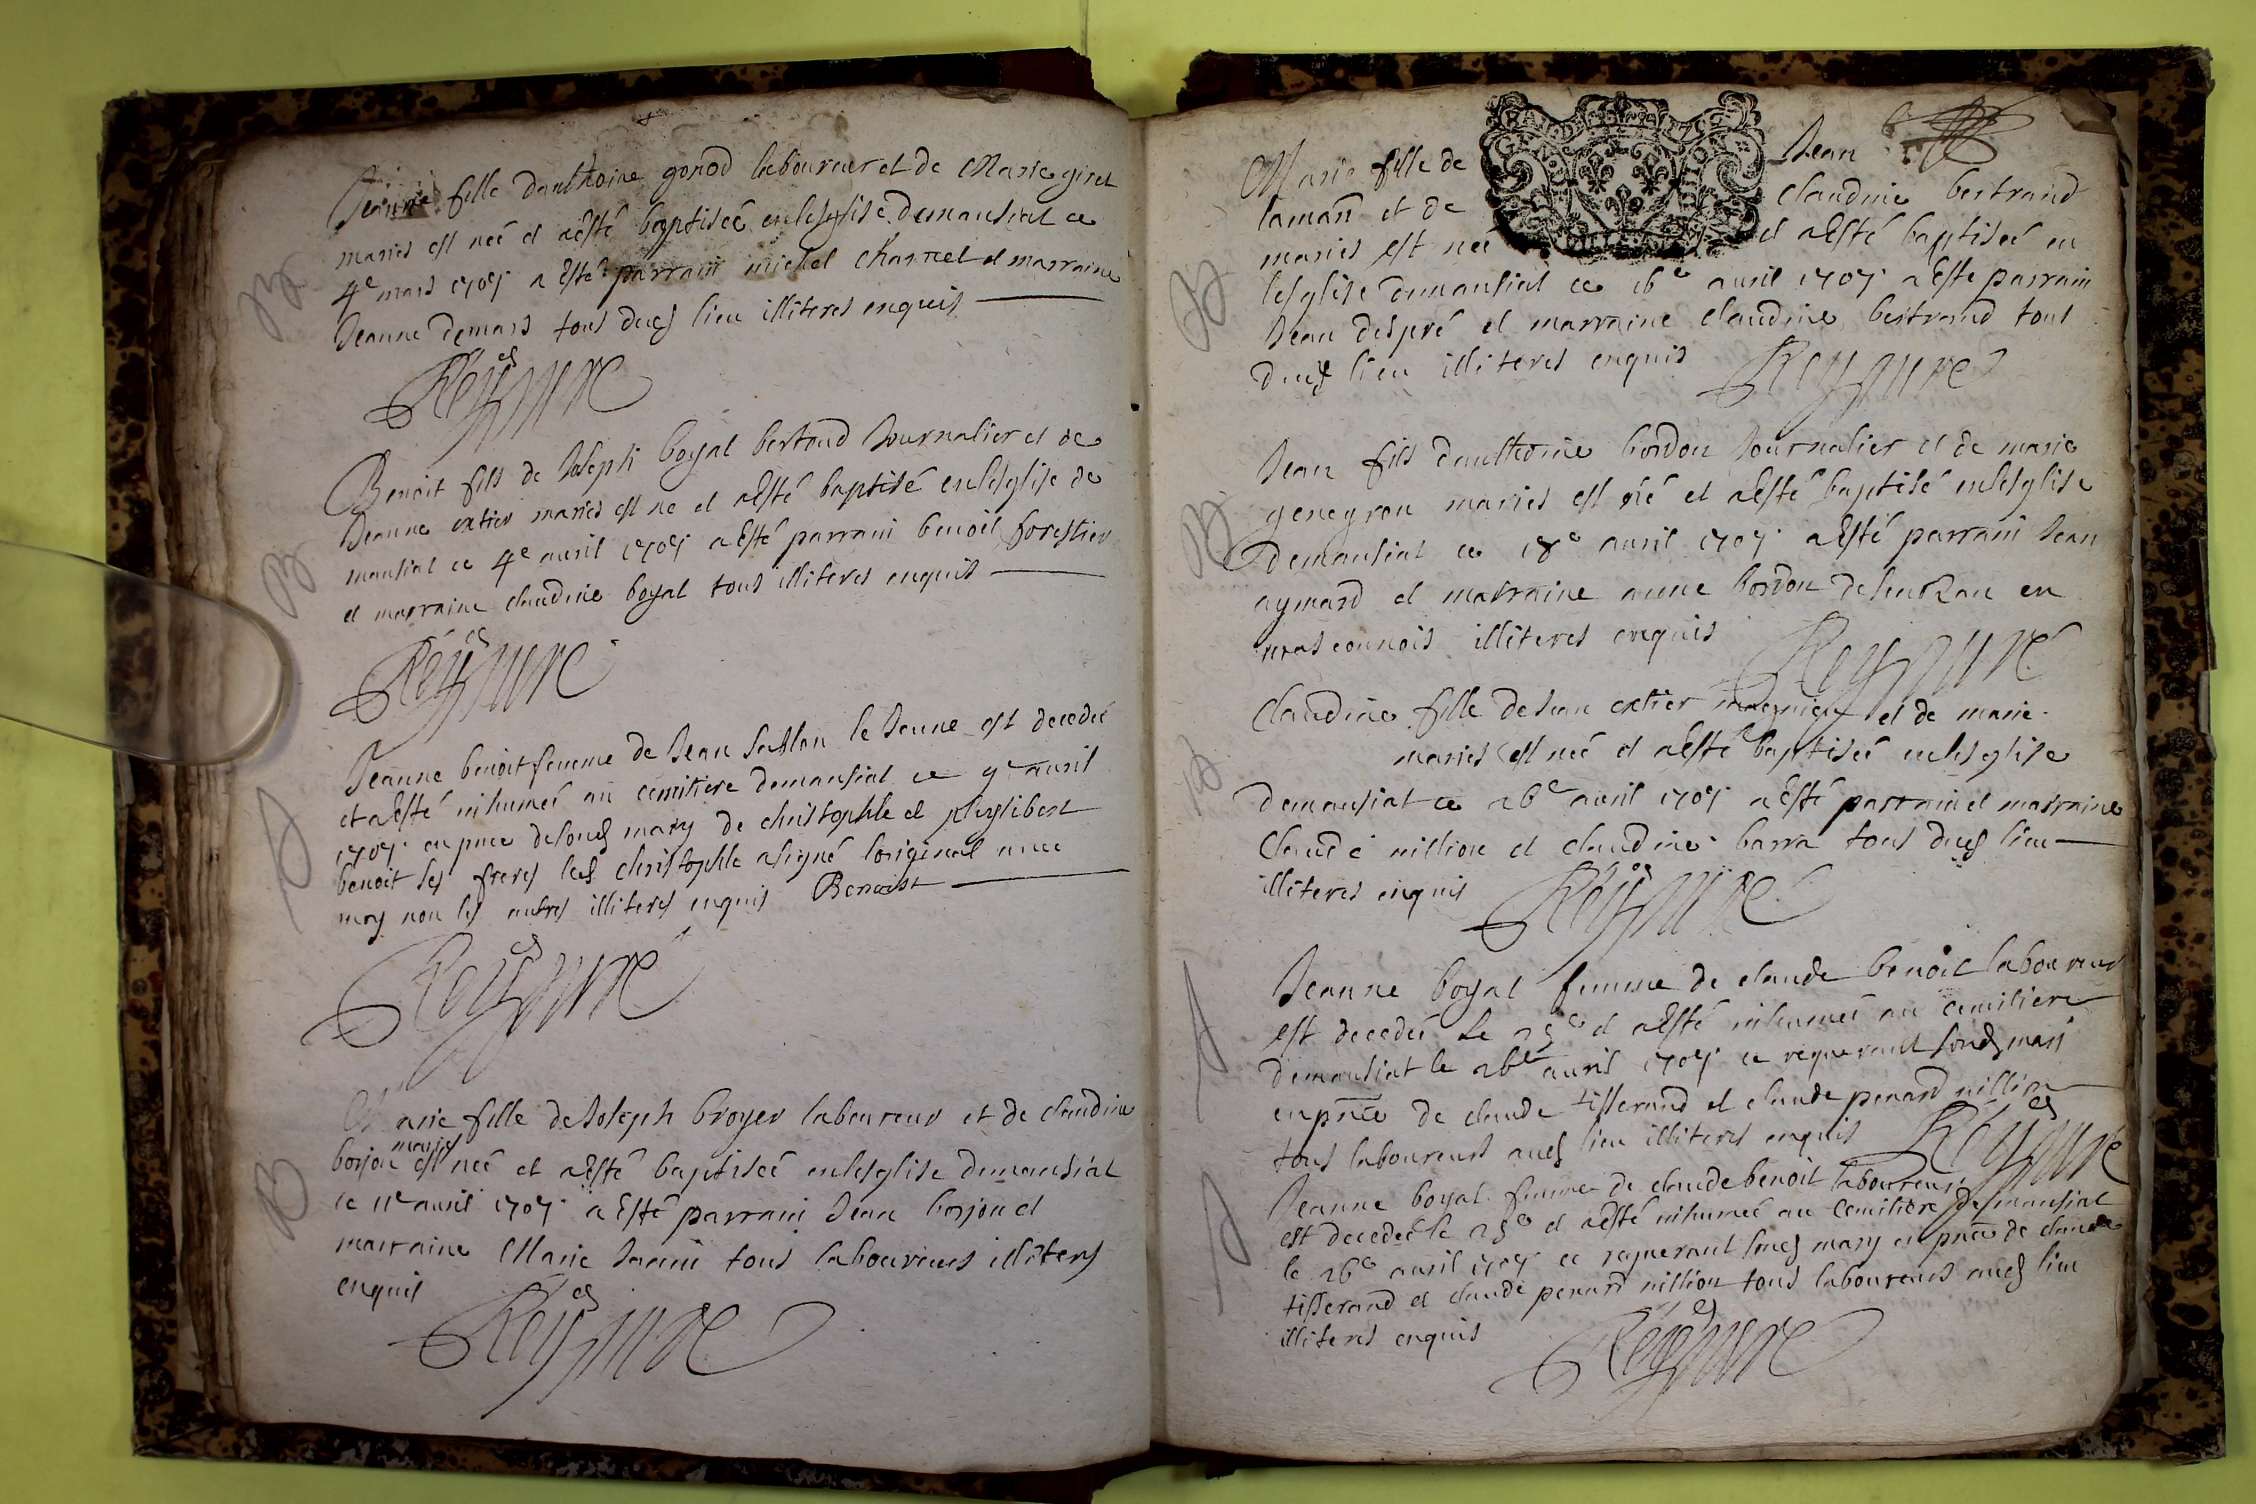 Jeanne fille danthoine gonod laboureur et de Marie giret
maries est neé et aésté baptiseé enlesglise demansiat ce
4e mars 1707 a esté parrain michel charnel et marraine
Jeanne demars tous dud lieu illiteres enquis
Reyssure
Benoit fils de Joseph boyat bertoud Journalier et de
Jeanne extier maries est ne et aésté baptisé enlesglise de
mansiat ce 4e avril 1707 a esté parrain benoit forestier
et marraine claudine boyat tous illiteres enquis
Reyssure
Jeanne benoit femme de Jean sablon le Jeune est decedeé
et aésté inhumeé au cemitiere demansiat ce 9e avril
1707 en pnce desond mary de christophle et phylibert
benoit ses freres led christophle asigné loriginal avec
moy non les autres illiteres enquis Benoist
Reyssure
Marie fille de Joseph broyer laboureur et de claudine
maries
borjon est neé et aésté baptiseé enlesglise demansiat
ce 11e avril 1707 a esté parrain Jean borjon et
marraine Marie tous laboureurs illiteres
enquis
Reyssure
Marie fille de Jean
laman et de claudine bertrand
maries est neé et aésté baptiseé en
lesglise demansiat ce 16e avril 1707 a este parrain
Jean despré et marraine claudine bertrand tous
dud lieu illiteres enquis Reyssure
Jean fils danthoine bordon Journalier et de marie
genegrou maries est né et aésté baptisé enlesglise
demansiat ce 18e avril 1707 a esté parrain Jean
aymard et marraine anne bordon en
masconnois illiteres enquis Reyssure
Claudine fille deJean extier et de marie
maries est neé et aésté baptiseé enlesglise
demansiat ce 26e avril 1707 a esté parrain et marraine
Claude nillion et claudine barra tous dud lieu
illiteres enquis Reyssure
Jeanne boyat femme de claude benoit laboureur
est decedeé le 25e et aésté inhumeé au cemitiere
demansiat le 26e avril 1707 ce requerant sond mary
en pnce de claude tisserand et claude penard nillion
tous laboureurs aud lieu illiteres enquis Reyssure
Jeanne boyat femme de claude benoit laboureur
est decedeé le 25e et aésté inhumeé au cemitiere demansiat
le 26e avril 1707 ce requerant sond mary en pnce de claude
tisserand et claude penard nillion tous laboureurs aud lieu
illiteres enquis
Reyssure